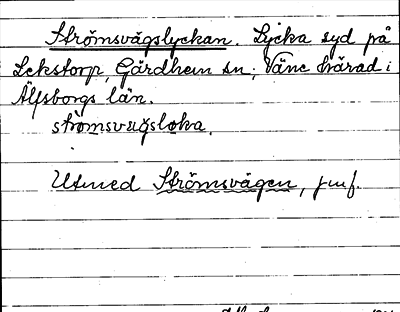 Strömsvägslyckan. Lycka syd på
Lekstorp, Gärdhem sn; Väne härad i
Älfsborgs län.
strömsvägsloka.
Utmed Strömsvägen, jmf.